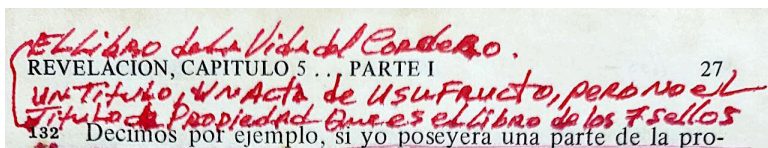 El Libro de la Vida del Cordero.
REVELACION, CAPITULO 5 . . . PARTE I 27
un Titulo, un Acta de Usufructo, pero no el
Titulo de Propiedad que es el Libro de los 7 sellos
132 Decimos por ejemplo, si yo poseyera una parte de la pro-